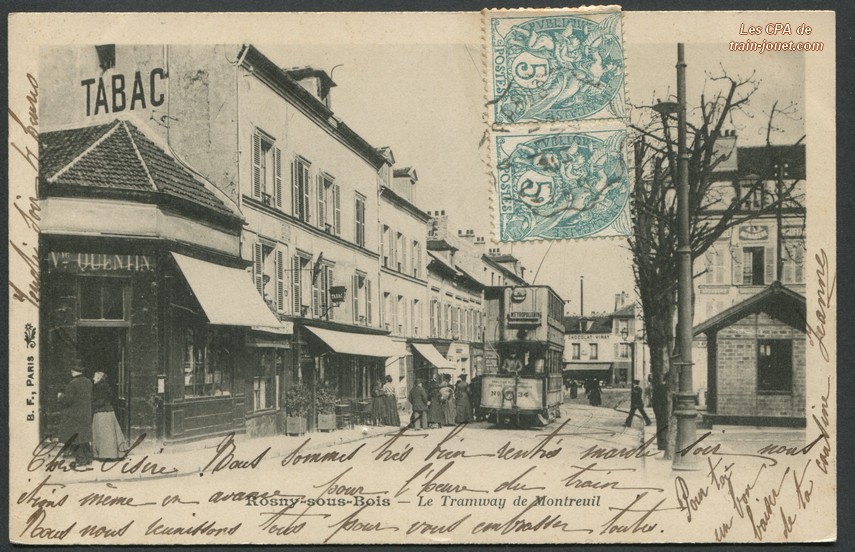 Les CPA de
train-jouet.com
TABAC
Vve QUENTIN
TABAC
RÉPUBLIQUE
5
POSTES
5
POSTES
METROPOLITAIN
CHOCOLAT-VINAY
B. F., PARIS
Chère Désirée Nous sommes très bien rentrés mardi soir nous
étions même en avance pour l'heure du train
Rosny-sous-Bois — Le Tramway de Montreuil
Nous nous réunissons tous pour vous embrasser toutes.
Pour toi
un bon
baiser
de ta cousine
Jeanne